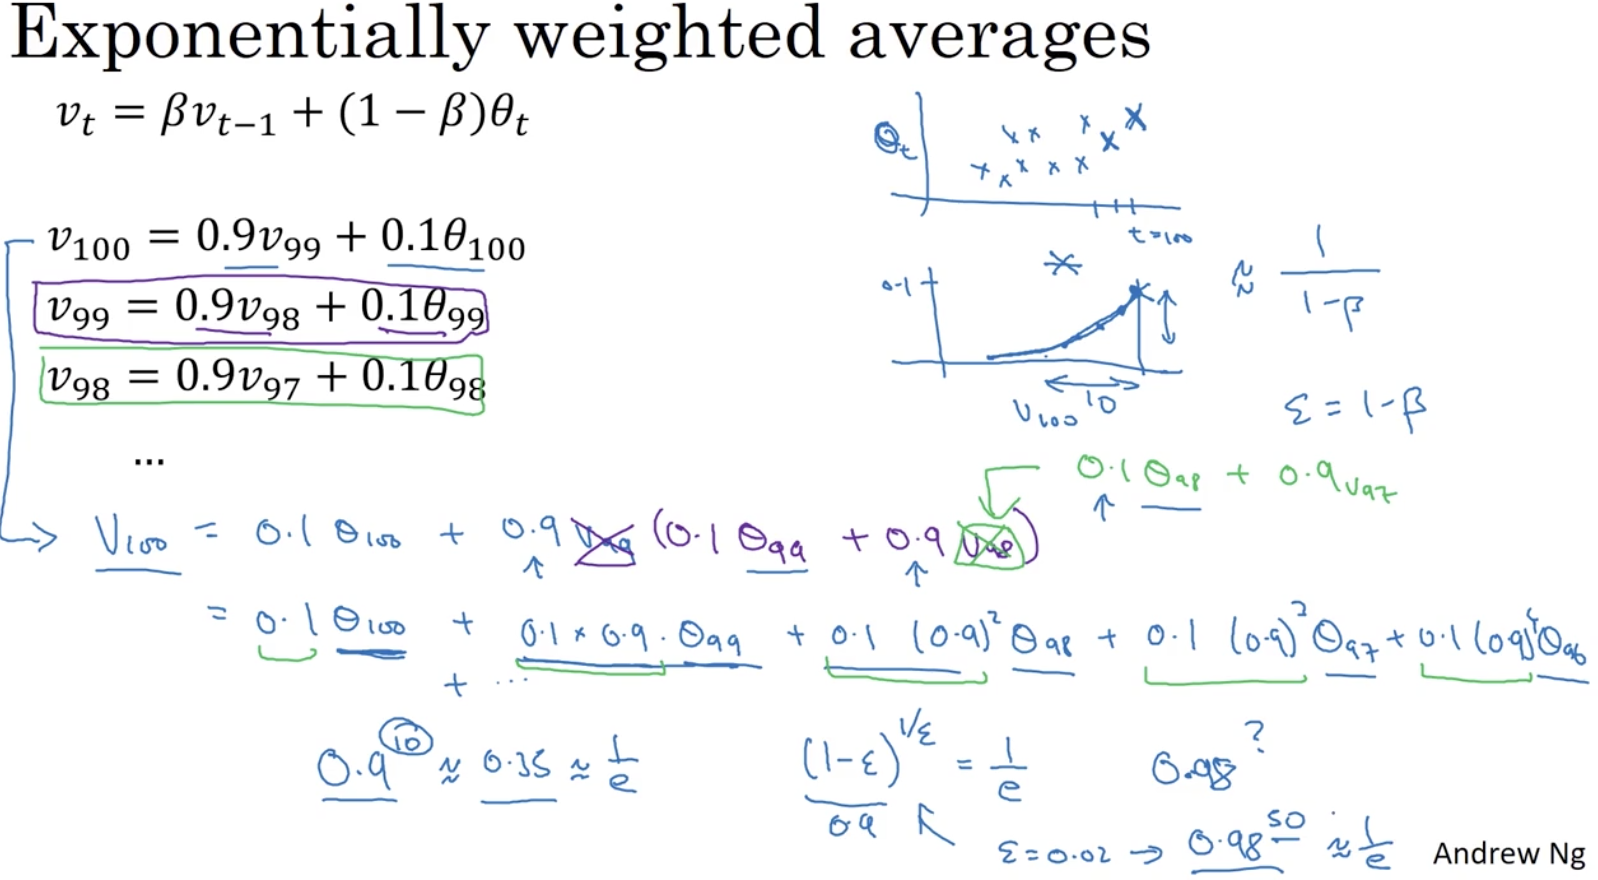 Exponentially weighted averages
v_t = βv_{t−1} + (1 − β)θ_t
θ_t
t=100
v_100 = 0.9v_99 + 0.1θ_100
v_99 = 0.9v_98 + 0.1θ_99
v_98 = 0.9v_97 + 0.1θ_98
...
0.1
≈ 1/(1-β)
10
V_100
ε = 1-β
0.1 θ_98 + 0.9 v_97
V_100 = 0.1 θ_100 + 0.9 v_99 (0.1 θ_99 + 0.9 v_98)
= 0.1 θ_100 + 0.1 × 0.9 · θ_99 + 0.1 (0.9)^2 θ_98 + 0.1 (0.9)^3 θ_97 + 0.1 (0.9)^4 θ_96
+ ...
0.9^10 ≈ 0.35 ≈ 1/e
(1-ε)^{1/ε} = 1/e
0.9
0.98 ?
ε = 0.02 → 0.98^50 ≈ 1/e
Andrew Ng